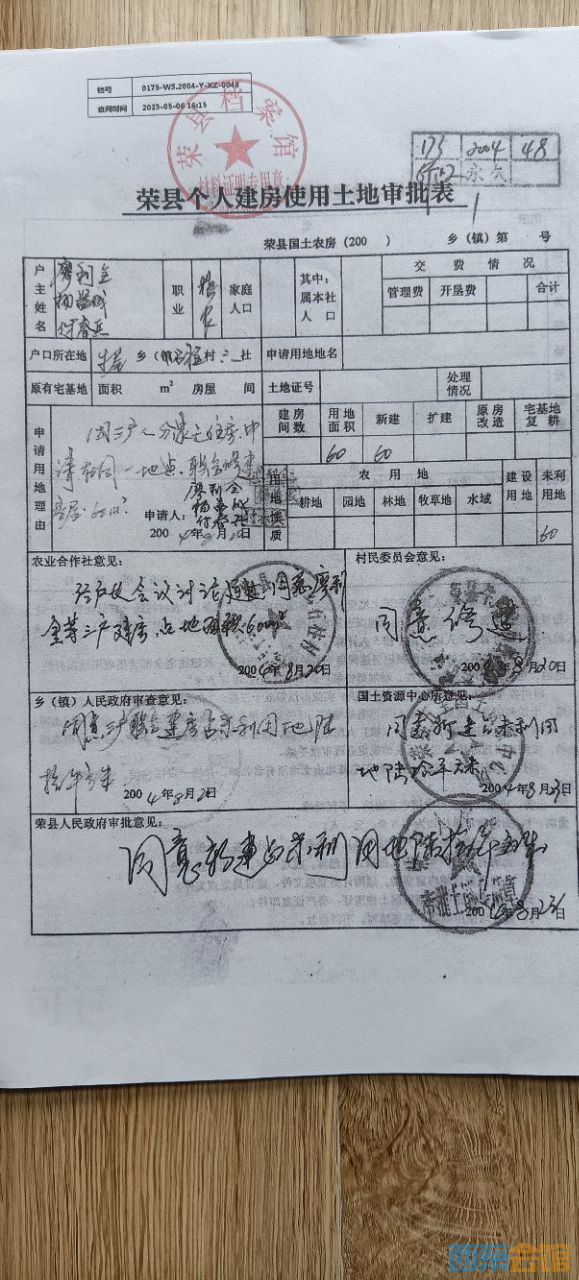 档号 0175-WS.2004-Y-XZ-0048
查阅时间 2023-05-06 16:15
荣县档案馆
材料证明专用章
173 2004 48
永久
荣县个人建房使用土地审批表
荣县国土农房(200 ) 乡(镇)第 号
户主姓名 廖利全
职业 务农 家庭人口 其中:属本社人口 交费情况
管理费 开垦费 合计
户口所在地 乡(镇) 村 社 申请用地地名
原有宅基地 面积 m² 房屋 间 土地证号 处理情况
申请用地理由
因三户人分家无住房,申
请在同一地点,联合修建
房屋.60m².
申请人:廖利全
2004年8月20日
建房间数 用地面积 新建 扩建 原房改造 宅基地复耕
60 60
用地性质 农用地 建设用地 未利用地
耕地 园地 林地 牧草地 水域
60
农业合作社意见:
经户以会议讨论通过,同意廖利
全等三户建房,占地面积60m²
2004年8月20日
村民委员会意见:
同意修建.
2004年8月20日
乡(镇)人民政府审查意见:
同意三户联合建房占未利用地陆
拾平方米
2004年8月2日
国土资源中心房意见:
同意新建占未利用
地陆拾平方米
2004年8月23日
荣县人民政府审批意见:
同意新建占未利用地陆拾平方米.
2004年8月23日